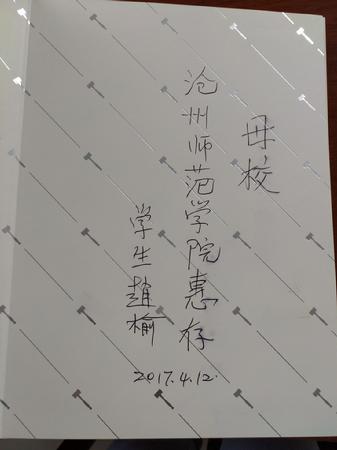 母校
沧州师范学院惠存
学生赵榆
2017.4.12.